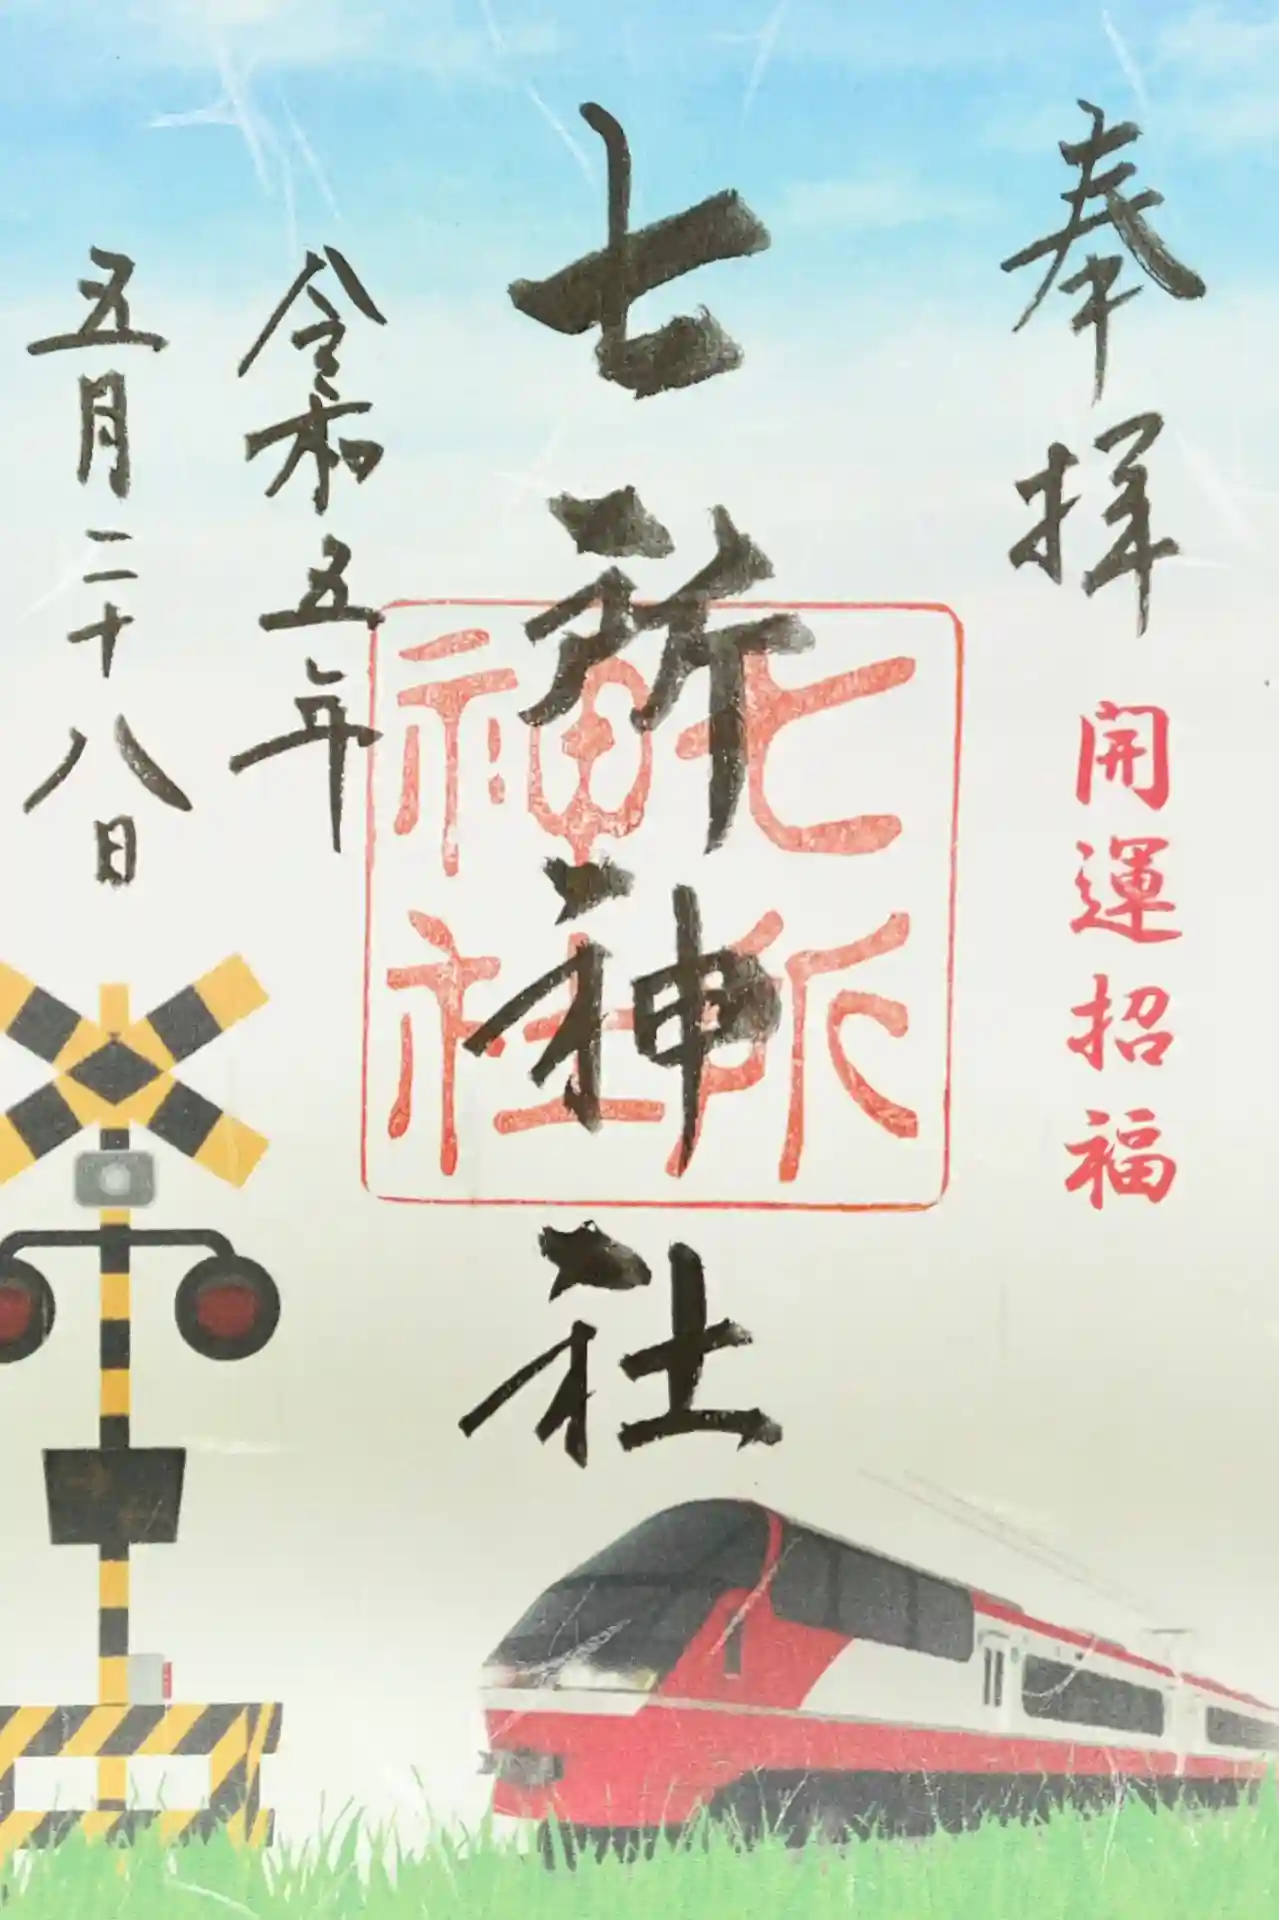 奉拝
開運招福
七所神社
七所
神社
令和五年
五月二十八日